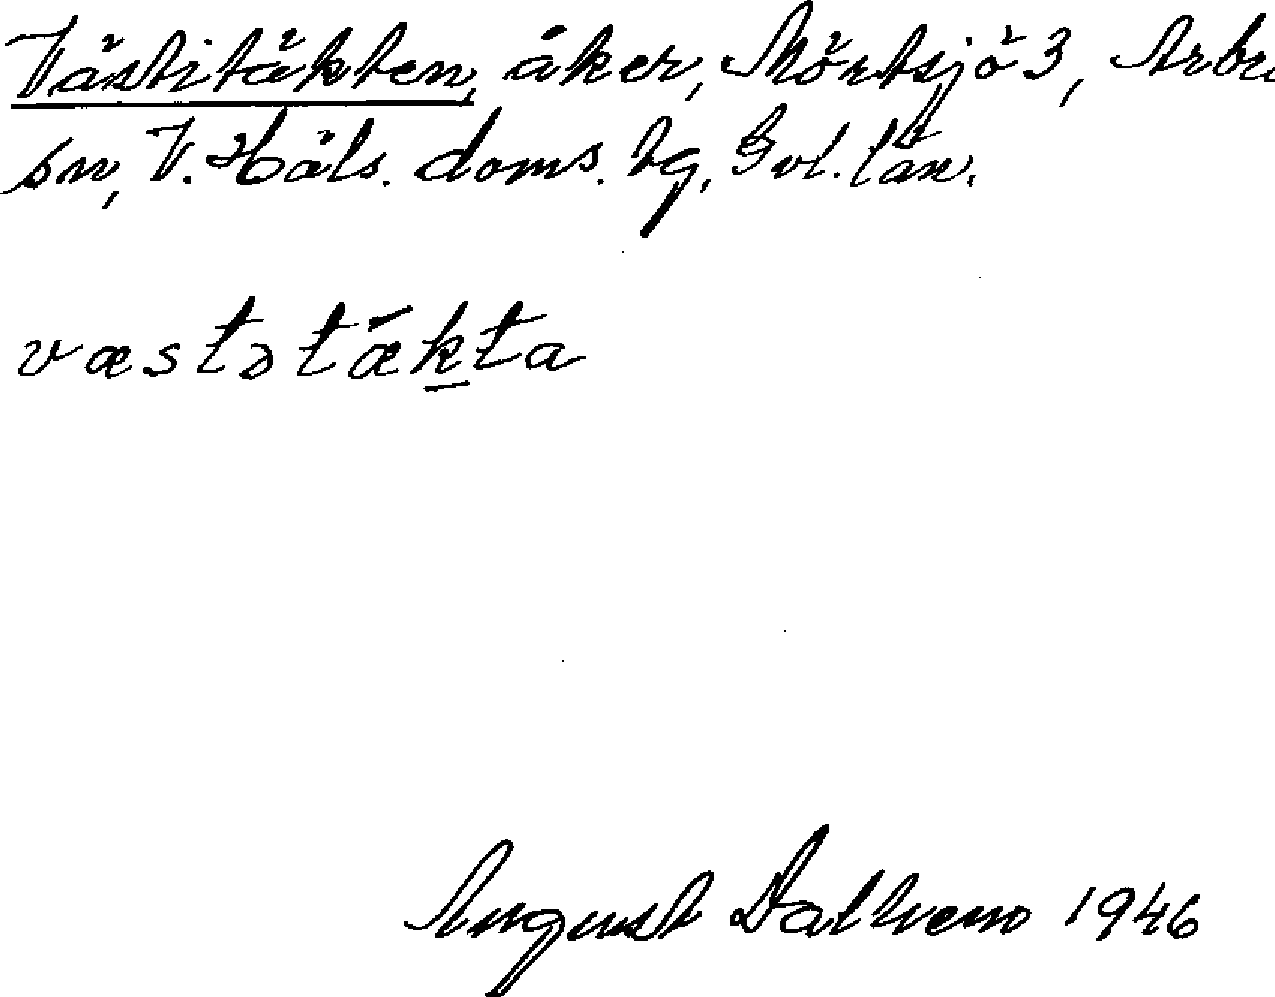 Västitäkten, åker, Mörtsjö 3, Arbrå
sn, V. Häls. doms. tg, Gvl. län.
væstətǽk̲ta
August Dalhem 1946